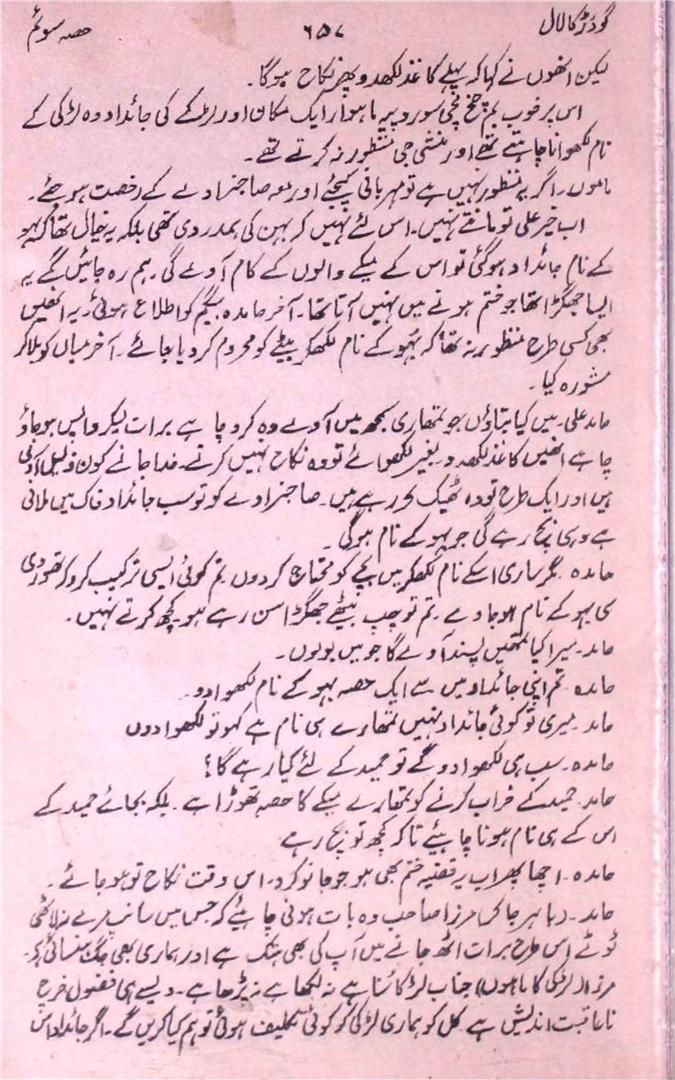 گودڑ کا لال ۶۵۷ حصہ سوئم
لیکن انھوں نے کہا کہ پہلے کاغذ لکھدو پھر نکاح ہوگا۔
اس پر خوب بم چخ مچی سو روپیہ ماہوار ایک مکان اور لڑکے کی جائداد وہ لڑکی کے
نام لکھوانا چاہتے تھے اور منشی جی منظور نہ کرتے تھے۔
ماموں۔ اگر یہ منظور نہیں ہے تو مہربانی کیجئے اور معہ صاحبزادے کے رخصت ہوجئے۔
اب خیر علی تو مانتے نہیں۔ اس لئے نہیں کہ بہن کی ہمدردی تھی بلکہ یہ خیال تھا کہ بہو
کے نام جائداد ہوگئی تو اس کے میکے والوں کے کام آوے گی۔ ہم رہ جائیں گے یہ
ایسا جھگڑا تھا جو ختم ہونے میں نہیں آتا تھا۔ آخر حامدہ بیگم کو اطلاع ہوئی۔ یہ انھیں
بھی کسی طرح منظور نہ تھا کہ بہو کے نام لکھکر بیٹے کو محروم کردیا جائے۔ آخر میاں کو بلاکر
مشورہ کیا۔
حامد علی۔ میں کیا بتاؤں جو تمھاری سمجھ میں آوے وہ کرو چاہے برات لیکر واپس ہوجاؤ
چاہے انھیں کاغذ لکھدو۔ بغیر لکھوائے تو وہ نکاح نہیں کرتے۔ خدا جانے کون ذلیل آدمی
ہیں اور ایک طرح تو وہ ٹھیک کر رہے ہیں۔ صاحبزادے کو تو سب جائداد خاک میں ملانی
ہے وہی بچ رہے گی جو بہو کے نام ہوگی۔
حامدہ۔ مگر ساری اسکے نام لکھکر میں بچے کو محتاج کردوں تم کوئی ایسی ترکیب کرو کہ تھوڑی
سی بہو کے نام ہوجاوے۔ تم تو چپ بیٹھے جھگڑا سن رہے ہو۔ کچھ کرتے نہیں۔
حامد۔ میرا کیا تمھیں پسند آوے گا جو میں بولوں۔
حامدہ۔ تم اپنی جائداد میں سے ایک حصہ بہو کے نام لکھوادو۔
حامد۔ میری تو کوئی جائداد نہیں تمھارے ہی نام ہے کہو تو لکھوادوں
حامدہ۔ سب ہی لکھوادو گے تو حمید کے لئے کیا رہے گا؟
حامد۔ حمید کے خراب کرنے کو تمھارے میکے کا حصہ تھوڑا ہے۔ بلکہ بجائے حمید کے
اس کے ہی نام ہونا چاہئیے تاکہ کچھ تو بچ رہے
حامدہ۔ اچھا پھر اب یہ قضیہ ختم بھی ہو جو جانو کرو۔ اس وقت نکاح تو ہو جائے۔
حامد۔ (باہر جا کر) مرزا صاحب وہ بات ہونی چاہئیے کہ جس میں سانپ مرے نہ لاٹھی
ٹوٹے اس طرح برات اٹھ جانے میں آپ کی بھی ہتک ہے اور ہماری بھی جگ ہنسائی ہے۔
مرزا (لڑکی کا ماموں) جناب لڑکا سنا ہے نہ لکھا ہے نہ پڑھا ہے۔ ویسے ہی فضول خرچ
ناعاقبت اندیش ہے کل کو ہماری لڑکی کو کوئی تکلیف ہوئی تو ہم کیا کریں گے۔ اگر جائداد اس